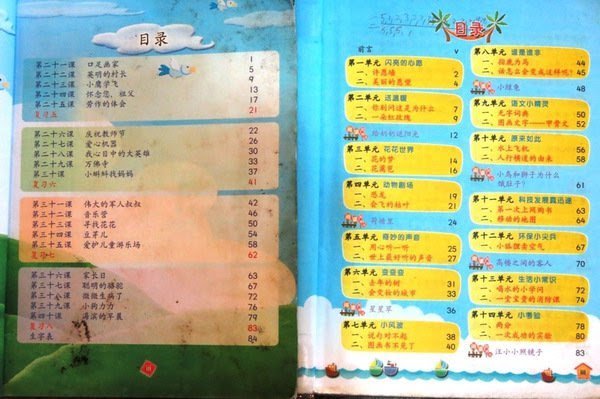 目录
第二十一课 口足画家 1
第二十二课 英明的村长 5
第二十三课 小鹰学飞 9
第二十四课 怀念您,祖父 13
第二十五课 劳作的体会 17
复习五 21
第二十六课 庆祝教师节 22
第二十七课 爱心机器 26
第二十八课 我心目中的大英雄 30
第二十九课 万佛寺 33
第三十课 小蝌蚪找妈妈 37
复习六 41
第三十一课 伟大的军人叔叔 42
第三十二课 音乐营 46
第三十三课 寻找花花 50
第三十四课 豆芽儿 54
第三十五课 爱护儿童游乐场 58
复习七 62
第三十六课 家长日 63
第三十七课 聪明的骆驼 67
第三十八课 微微生病了 72
第三十九课 小狗力力 76
第四十课 海滨的早晨 79
复习八 83
生字表 84
目录
前言 v
第一单元 闪亮的心愿
一、许愿墙 2
二、美丽的愿望 4
第二单元 送温暖
一、你别问这是为什么 7
二、一朵红玫瑰 9
给奶奶送阳光 12
第三单元 花花世界
一、花的梦 14
二、花荷包 16
第四单元 动物剧场
一、恐龙 19
二、会飞的枯叶 21
荷塘里 24
第五单元 奇妙的声音
一、用心听一听 25
二、世上最好听的声音 27
第六单元 变变变
一、去年的树 31
二、会变脸的城市 33
星星草 36
第七单元 小风波
一、说句对不起 38
二、图画书不见了 40
第八单元 谁是谁非
一、指鹿为马 44
二、话怎么会变成这样呢? 45
小绿兔 48
第九单元 语文小精灵
一、无字词典 50
二、图画文字——甲骨文 52
第十单元 原来如此
一、水上飞机 56
二、人行横道的由来 58
小鸟和狮子为什么饿肚子? 61
第十一单元 科技发展真迅速
一、第一次上网购书 63
二、移动的地图 64
第十二单元 环保小尖兵
一、小狐狸卖空气 67
高楼之间的客人 70
第十三单元 生活小常识
一、喝水的小学问 72
二、一堂宝贵的消防课 74
第十四单元 小考验
一、两分 78
二、一次成功的实验 80
汪小小照镜子 83